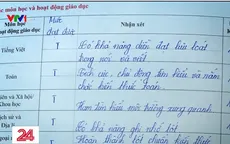 VTV1
các môn học và hoạt động giáo dục
Môn học
hoạt động giáo dục
Mức
đạt được
Nhận xét
Tiếng Việt
T
Có khả năng diễn đạt lưu loát
trong nói và viết
Toán
T
Tích cực, chủ động tìm hiểu và nắm
chắc kiến thức Toán
nhiên và Xã hội/
Khoa học
T
Ham tìm hiểu môi trường xung quanh
Lịch sử và
Địa lí
T
Có khả năng ghi nhớ tốt
24
T
Hoàn thành tốt chuẩn kiến thức